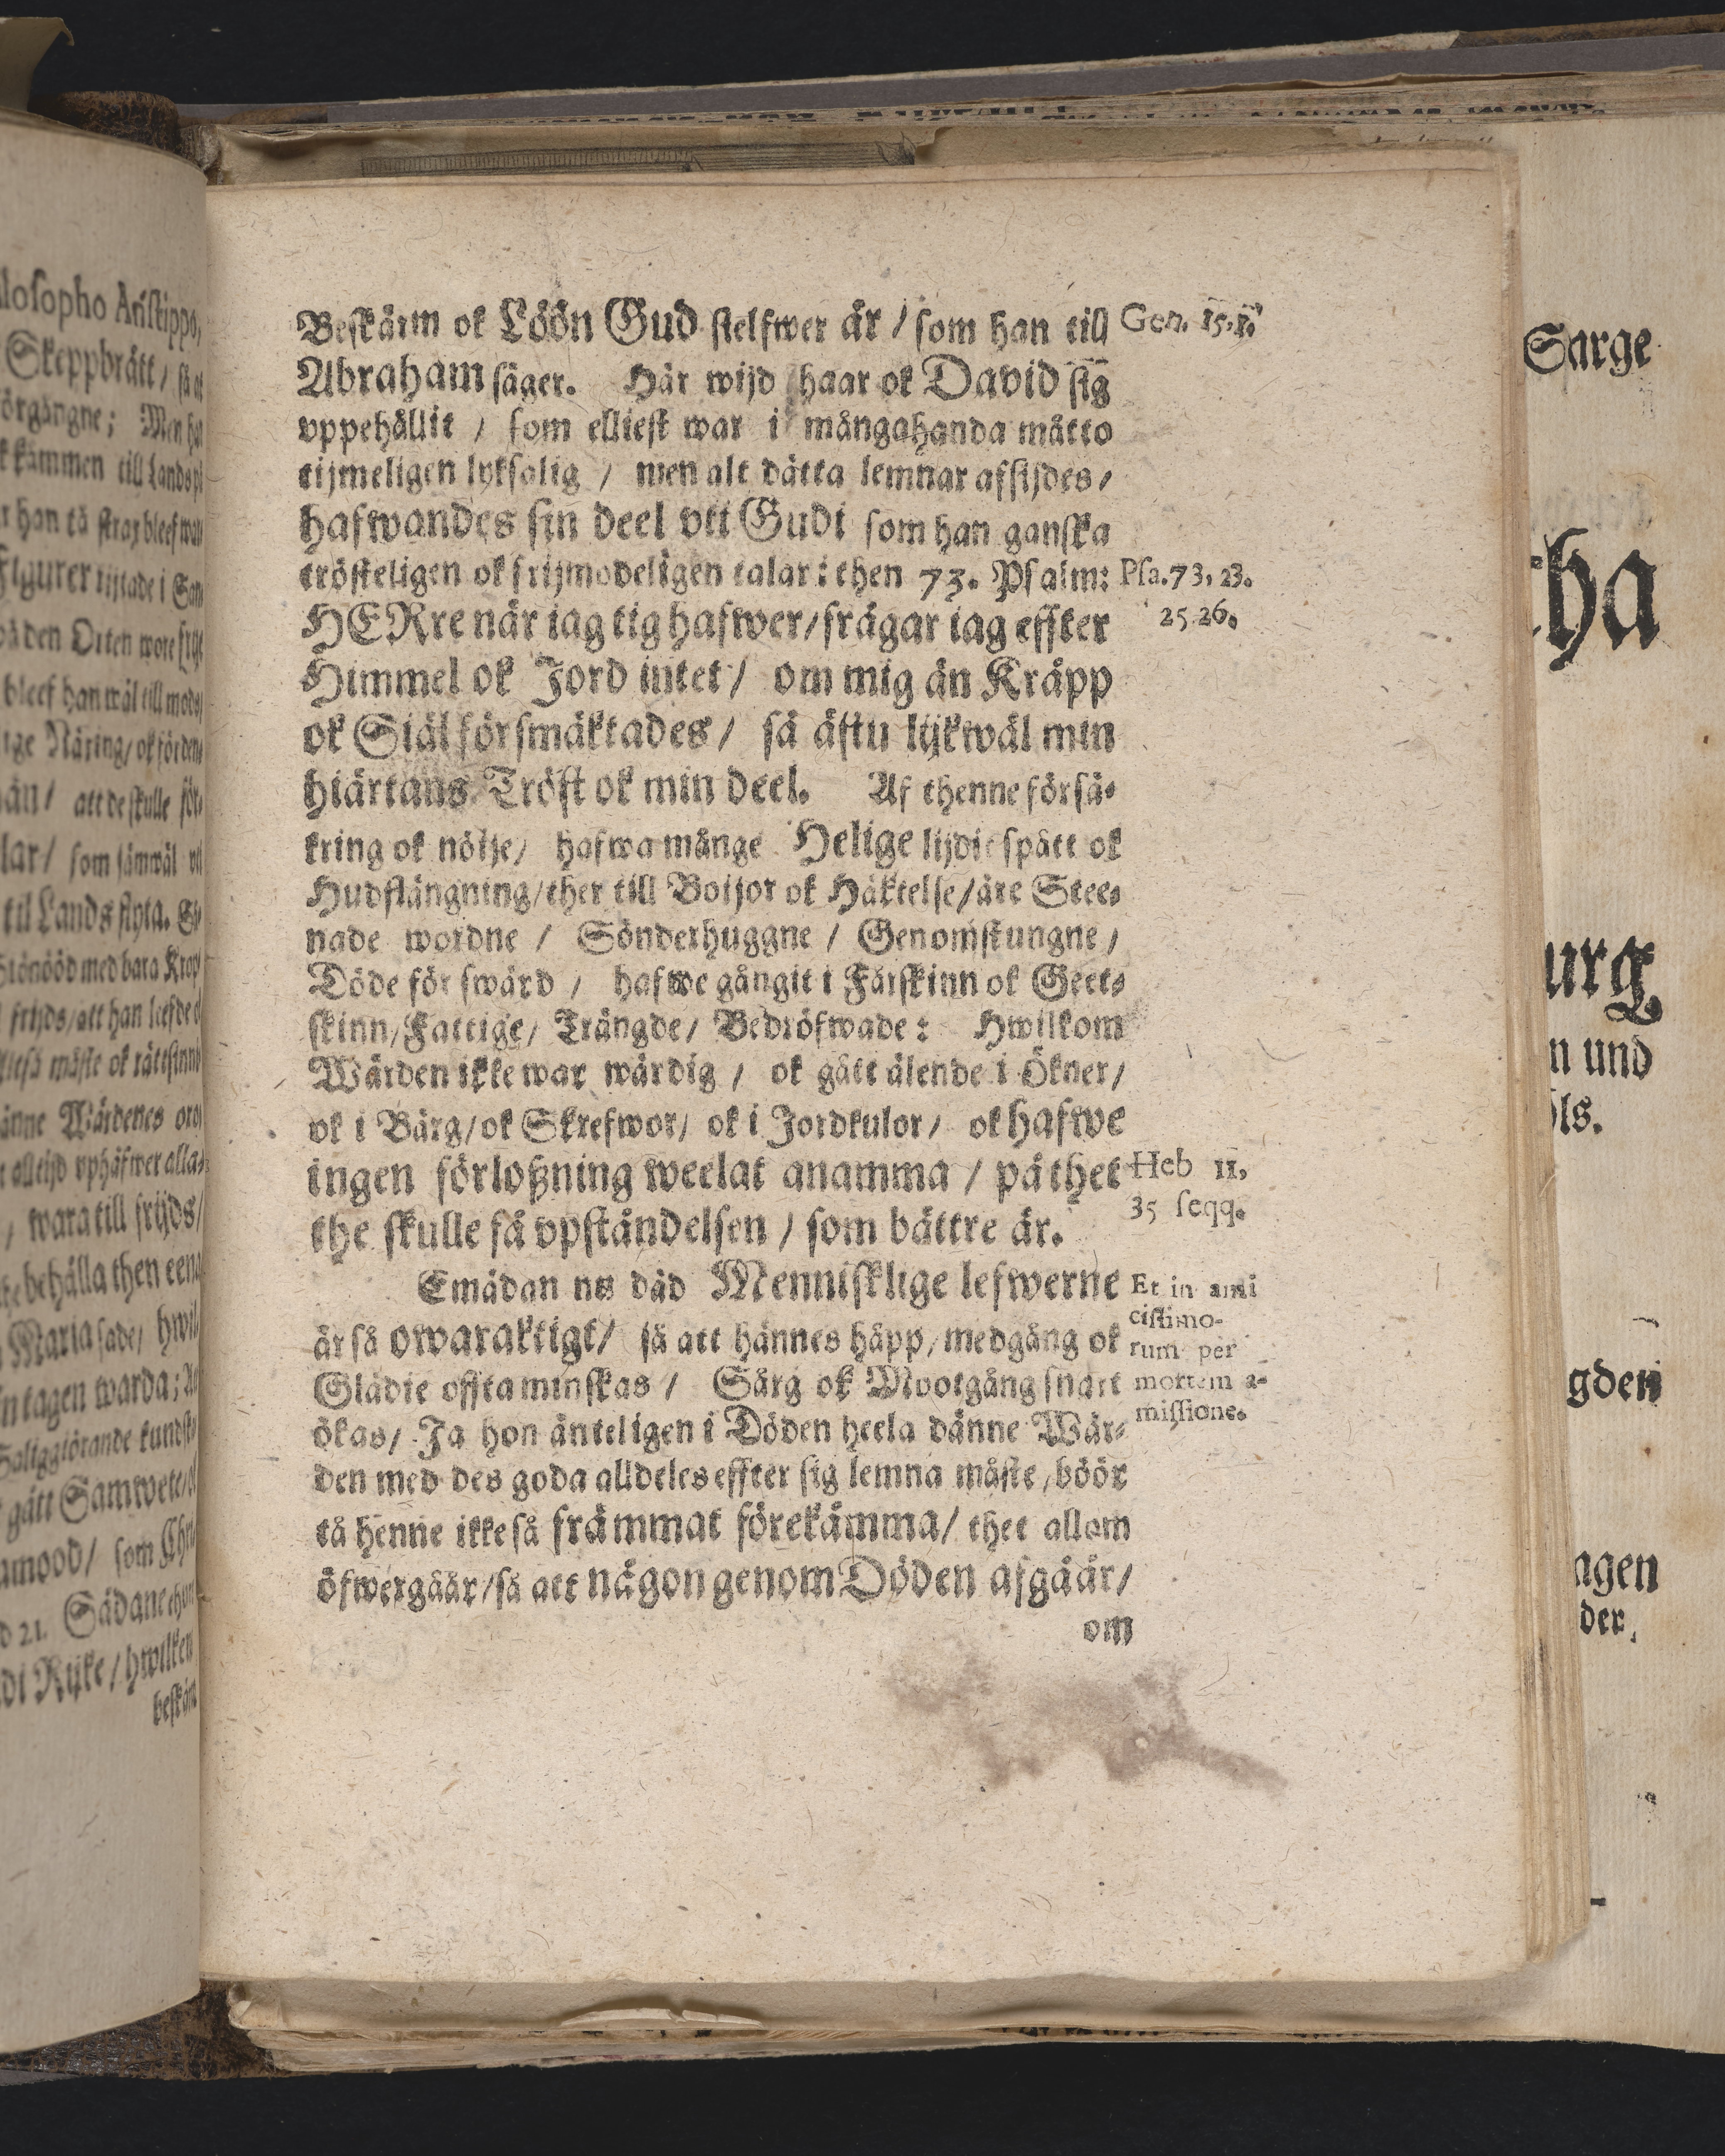 Beskärm ok Löön Gud sielfwer är / som han till
Abraham säger. Här wijd haar ok David sig
vppehållit / som elliest war i mångahanda måtto
tijmeligen lyksalig / men alt dätta lemnar afsijdes /
hafwandes sin deel vti Gudi som han ganska
trösteligen ok frijmodeligen talar i then 73. Psalm:
HERre när iag tig hafwer / frågar iag effter
Himmel ok Jord intet / om mig än Kråpp
ok Siäl försmäktades / så ästu lijkwäl min
hiärtans Tröst ok min deel. Af thenne försä-
kring ok nöije / hafwa månge Helige lijdit spått ok
Hudflängning / ther till Boijor ok Häktelse / äre Stee-
nade wordne / Sönderhuggne / Genomstungne /
Döde för swärd / hafwe gångit i Fårskinn ok Geet-
skinn / Fattige / Trångde / Bedröfwade: Hwilkom
Wärden ikke war wärdig / ok gått älende i Ökner /
ok i Bärg / ok Skrefwor / ok i Jordkulor / ok hafwe
ingen förloßning weelat anamma / på thet
the skulle få vpståndelsen / som bättre är.
Emädan nu däd Mennisklige lefwerne
är så owaraktigt / så att hännes häpp / medgång ok
Glädie offta minskas / Sårg ok Mootgång snart
ökas / Ja hon änteligen i Döden heela dänne Wär-
den med des goda alldeles effter sig lemna måste / böör
tå henne ikke så främmat förekämma / thet allom
öfwergåår / så att någon genom Döden afgåår /
om
Gen. 15.1.
Psa. 73, 23.
25 26.
Heb 11,
35 seqq.
Et in ami
cissimo-
rum per
mortem a-
missione.
losopho Aristippo,
Skeppbrått /
örgångne; Men
kämmen till Lands
han tå strax bleef
Figurer
på den Orten wore
bleef han wäl till mods /
Näring / ok förden
än / att de skulle för-
lar / som sämwäl
til Lands flyta.
med bara Kropp
frijds / att han leefde
måste ok rättsinn
änne Wärdenes
alltijd vphäfwer alla-
/ wara till frijds /
behålla then eena
Maria sade / hwil-
tagen warda;
Saliggiörande kundsk
gått Samwete /
amood / som
21. Sådane
Rijke / hwilken
beskärm
Sarge
tha
urg
n und
ls.
gden
agen
der,